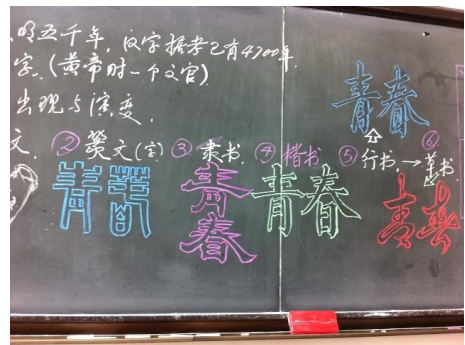 明五千年，汉字据考已有4700年.
字.（黄帝时一个文官）
出现与演变.
文. ② 篆文(字) ③ 隶书 ④ 楷书 ⑤ 行书 → ⑥ 草书
青春
青春
青春
青春
青春